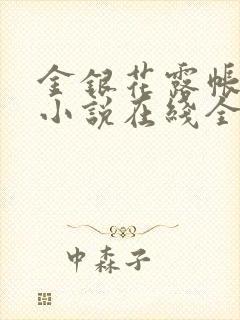 金銀花露帳
小說在綫全
中森子